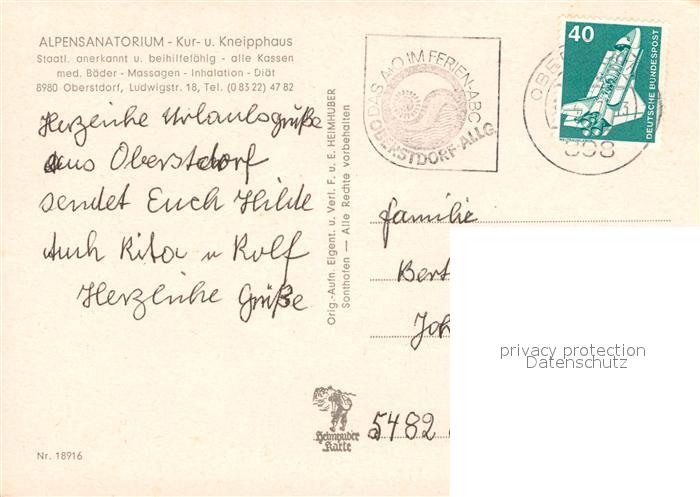 ALPENSANATORIUM - Kur- u. Kneipphaus
Staatl. anerkannt u. beihilfefähig - alle Kassen
med. Bäder - Massagen - Inhalation - Diät
8980 Oberstdorf, Ludwigstr. 18, Tel. (0 83 22) 47 82
Herzliche Urlaubsgrüße
aus Oberstdorf
sendet Euch Hilde
Auch Rita u Rolf
Herzliche Grüße
Nr. 18916
Orig.-Aufn. Eigent. u. Verl. F. u. E. HEIMHUBER
Sonthofen — Alle Rechte vorbehalten
Heimhuber
Karte
DAS A·O IM FERIEN-ABC
OBERSTDORF·ALLG.
40
DEUTSCHE BUNDESPOST
OBE
898
Familie
Bert
Joh
5482
privacy protection
Datenschutz